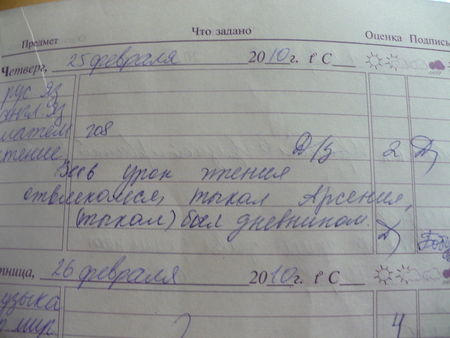 Предмет Что задано Оценка Подпись
Четверг, 25 февраля 2010 г. t° C
рус яз
англ. яз
матем 208
чтение Д/З 2
Весь урок чтения
отвлекался, тыкал Арсения,
(тыкал) бил дневником.
тница, 26 февраля 2010 г. t° C
узыка
мир 4